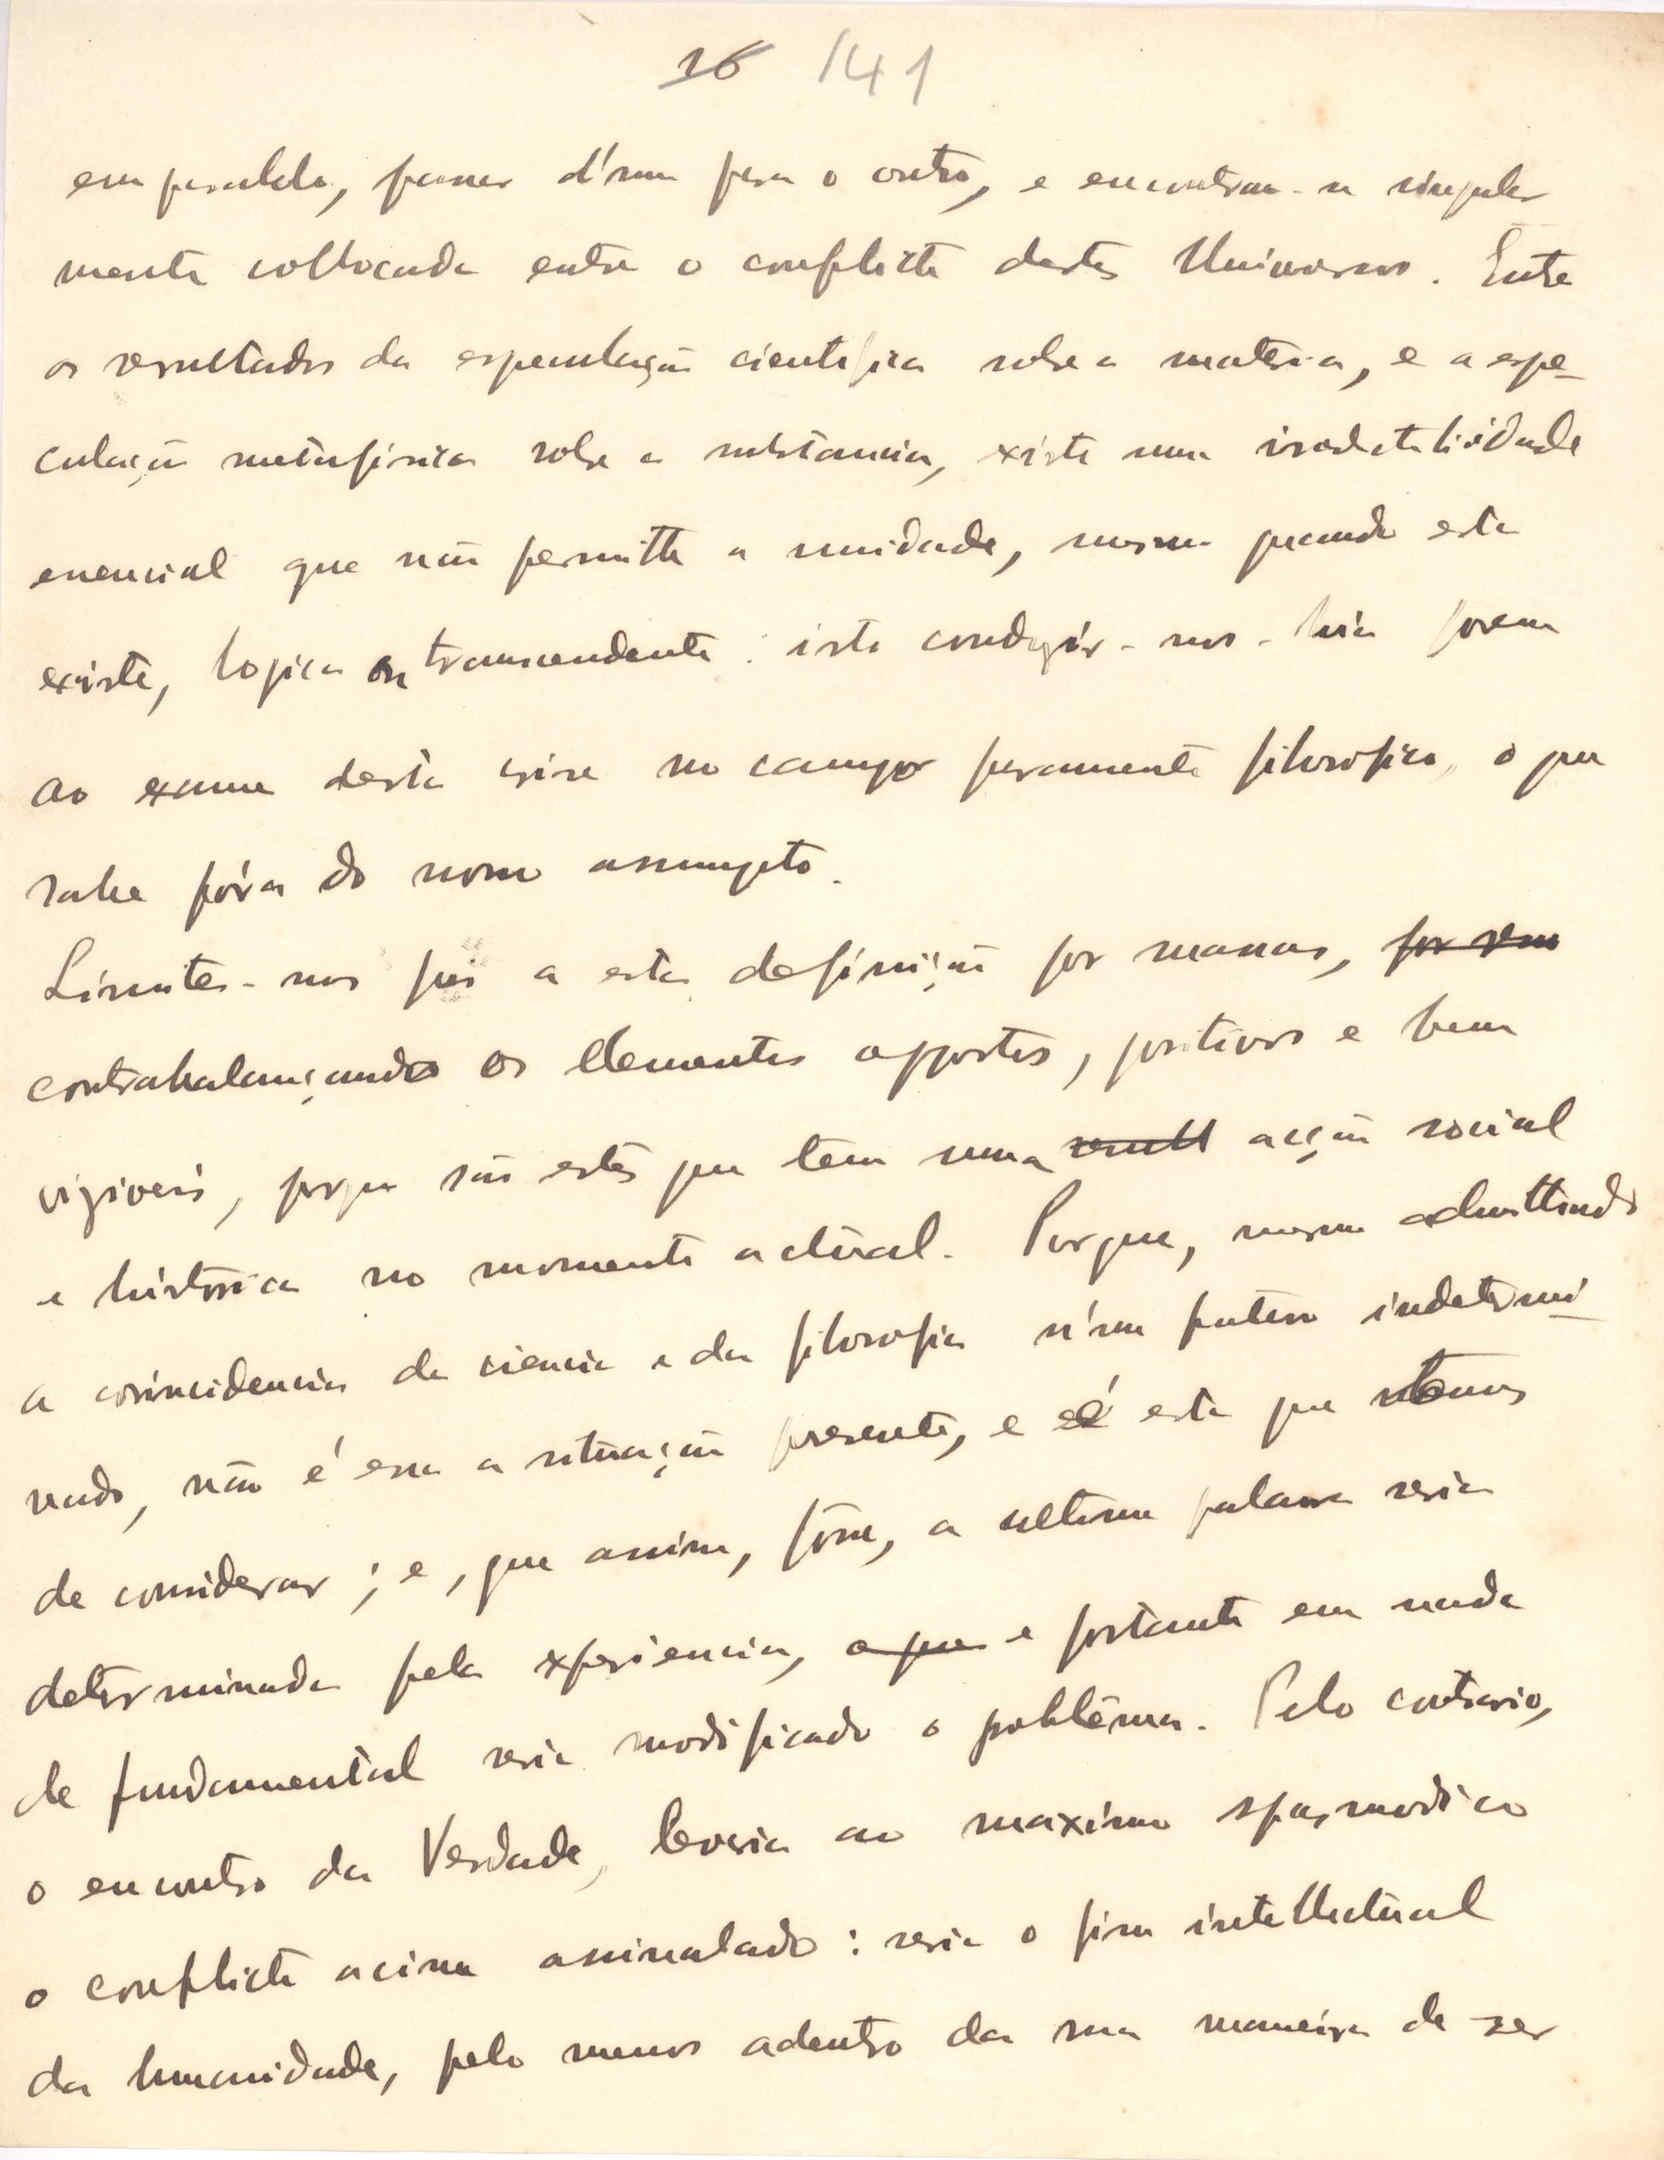 16 141
em paralelo, passar d'um para o outro, e encontram-se singular
mente collocada entre o conflicto destes Universos. Entre
os resultados da especulação cientifica sobre a materia, e a espe-
culação metafisica sobre a substancia, existe uma irredutibilidade
essencial que não permitte a unidade, mesmo quando esta
existe, logica ou transcendente: isto conduzir-nos-hia porem
ao exame desta crise no campo puramente filosofico, o que
sahe fóra do nosso assumpto.
Limitei-nos pois a esta definição por massas, por sem
contrabalançando os elementos oppostos, positivos e bem
viziveis, porque são estes que tem uma result acção social
e historica no momento actual. Porque, mesmo admittindo
a coincidencia da ciencia e da filosofia n'um futuro indetermi-
nado, não é essa a situação presente, e é esta que temos
de considerar; e, que assim, fosse, a ultima palavra seria
determinada pela experiencia, o que e portanto em nada
de fundamental seria modificado o problêma. Pelo contrario,
o encontro da Verdade, levaria ao maximo spasmodico
o conflicto acima assinalado: seria o fim intellectual
da humanidade, pelo menos adentro da sua maneira de ser